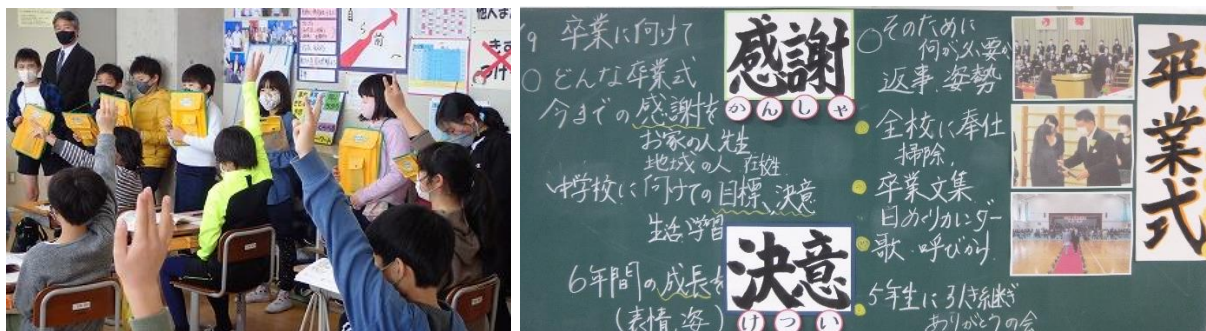 自ら
前へ
他人
きず
つけ
/9 卒業に向けて
○どんな卒業式
今までの感謝を
お家の人、先生
地域の人 在校生
中学校に向けての目標、決意
生活、学習
6年間の成長を
(表情、姿)
感謝
かんしゃ
決意
けつい
○そのために
何が必要か
返事、姿勢
全校に奉仕
掃除、
卒業文集
日めくりカレンダー
歌・呼びかけ
5年生に引き継ぎ
ありがとうの会
卒業式